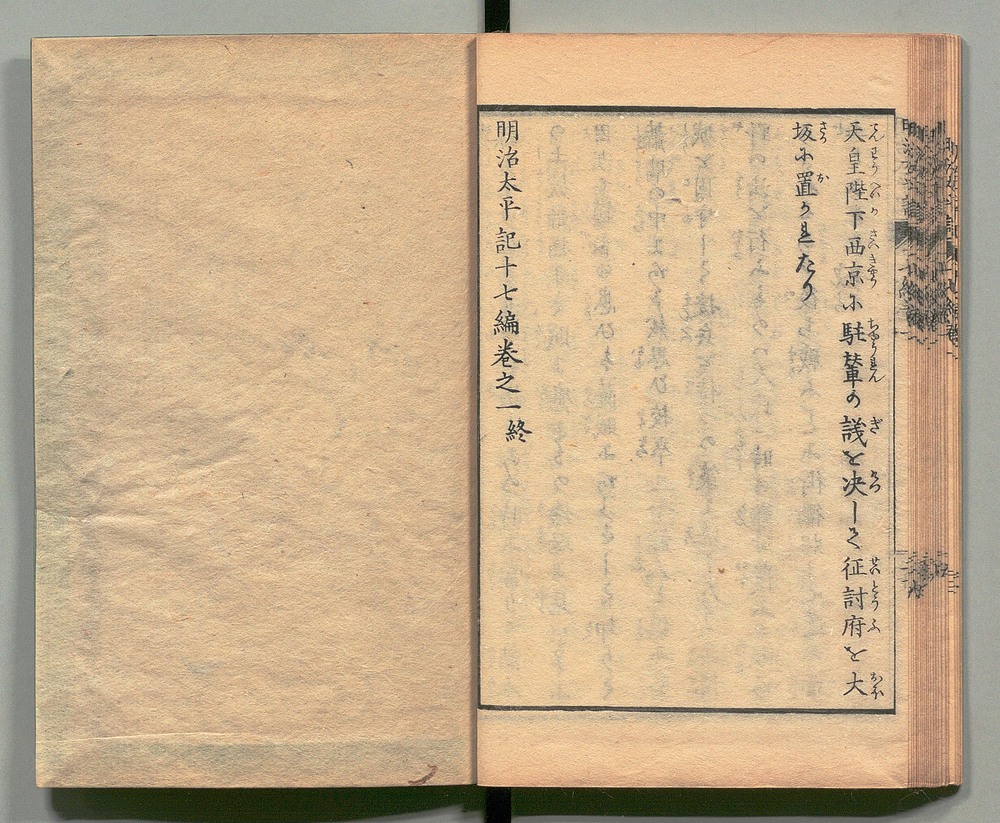 天皇陛下西京に駐輦の議を决して征討府を大
坂に置かれたり
明治太平記十七編巻之一終